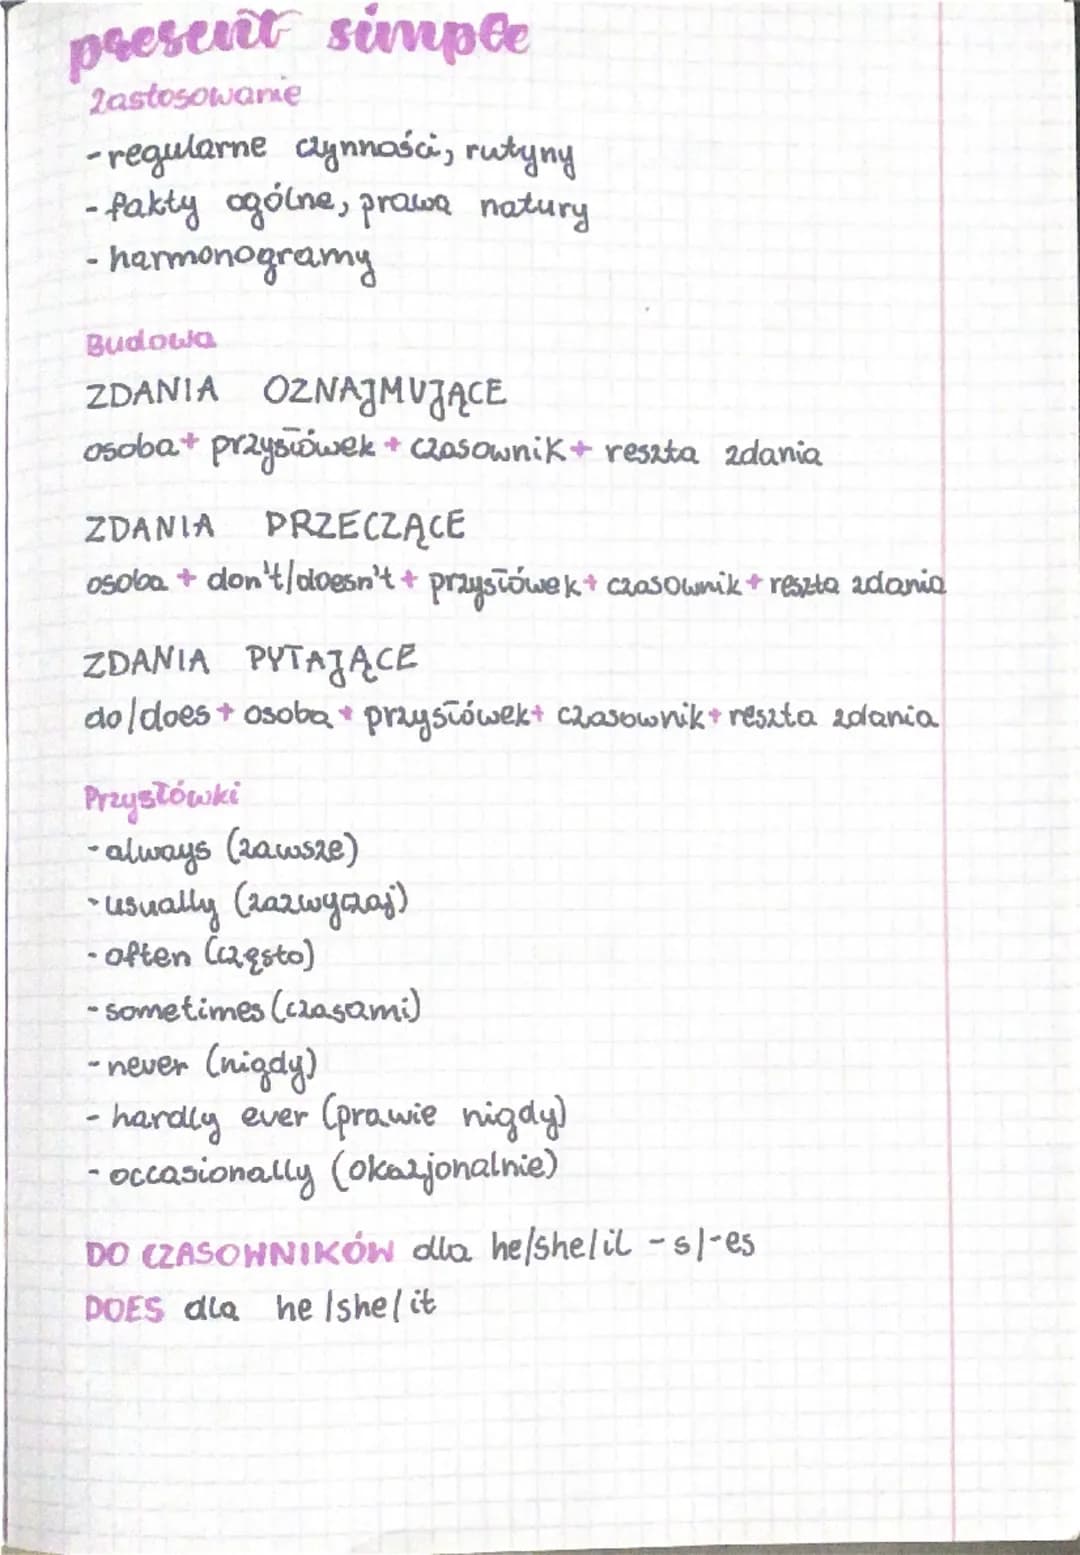 present simple
Zastosowanie
- regularne czynności, rutyny
- fakty ogólne, prawa natury
- harmonogramy
Budowa
ZDANIA OZNAJMUJĄCE
osoba + przysłówek + czasownik + reszta zdania
ZDANIA PRZECZĄCE
osoba + don't/doesn't + przysłówek + czasownik + reszta zdania
ZDANIA PYTAJĄCE
do/does + osoba + przysłówek + czasownik + reszta zdania
Przysłówki
- always (zawsze)
- usually (zazwyczaj)
- often (często)
- sometimes (czasami)
- never (nigdy)
- hardly ever (prawie nigdy)
- occasionally (okazjonalnie)
DO CZASOWNIKÓW dla he/she/it -s/-es
DOES dla he/she/it